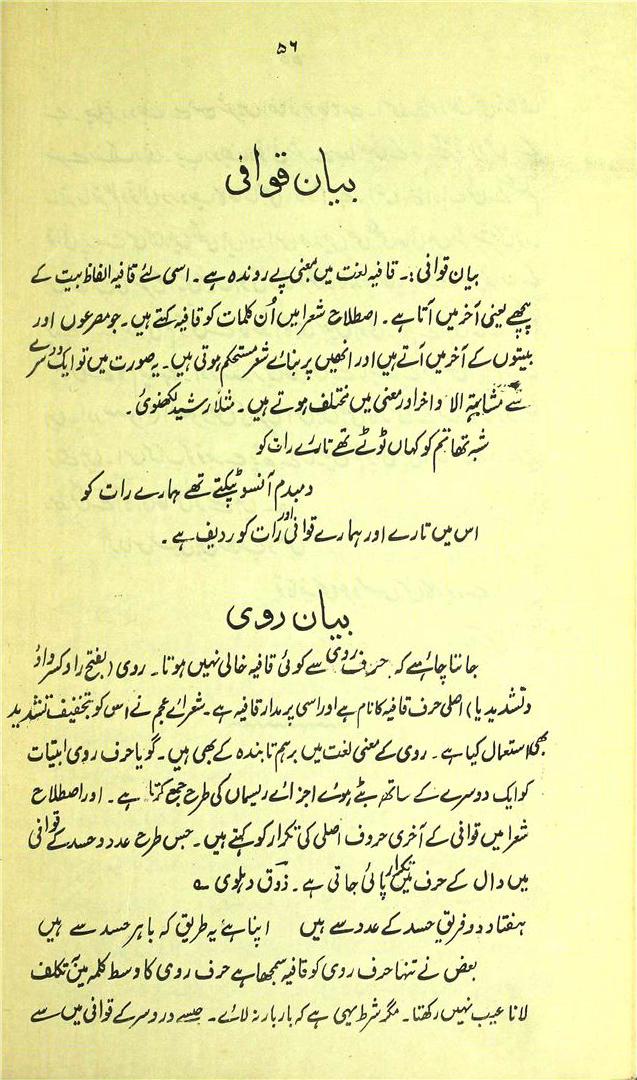 ۵۶
بیان قوافی
بیان قوافی:۔ قافیہ لغت میں معنی پے روندہ ہے۔ اسی لئے قافیہ الفاظ بیت کے
پیچھے یعنی آخر میں آتا ہے۔ اصطلاح شعرا میں اُن کلمات کو قافیہ کہتے ہیں۔ جو مصرعوں اور
بیتوں کے آخر میں آتے ہیں اور انھیں پر بنائے شعر مستحکم ہوتی ہیں۔ یہ صورت میں تو ایک دوسرے
سے مشابہۃ الاواخر اور معنی میں مختلف ہوتے ہیں۔ مثلاً رشید لکھنوی۔
شبہ تھا تم کو کہاں ٹوٹے تھے تارے رات کو
دمبدم آنسو ٹپکتے تھے ہمارے رات کو
اس میں تارے اور ہمارے قوافی اور رات کو ردیف ہے۔
بیان روی
جاننا چاہئے کہ حرف روی سے کوئی قافیہ خالی نہیں ہوتا۔ روی (بفتح را و کسر واؤ
و تشدید یا) اصلی حرف قافیہ کا نام ہے اور اسی پر مدار قافیہ ہے۔ شعرائے عجم نے اس کو بتخفیف تشدید
بھی استعمال کیا ہے۔ روی کے معنی لغت میں برہم تابندہ کے بھی ہیں۔ گویا حرف روی ابتیات
کو ایک دوسرے کے ساتھ بٹے ہوئے اجزائے ریسماں کی طرح جمع کرتا ہے۔ اور اصطلاح
شعرا میں قوافی کے آخری حروف اصلی کی تکرار کو کہتے ہیں۔ جس طرح عدد و حسد کے قوافی
میں دال کے حرف میں تکرار پائی جاتی ہے۔ ذوق دہلوی ؎
ہفتاد دو فریق حسد کے عدد سے ہیں اپنا ہے یہ طریق کہ باہر حسد سے ہیں
بعض نے تنہا حرف روی کو قافیہ سمجھا ہے حرف روی کا وسط کلمہ میں بہ تکلف
لانا عیب نہیں رکھتا۔ مگر شرط یہی ہے کہ بار بار نہ لائے۔ جیسے در و سر کے قوافی میں سے